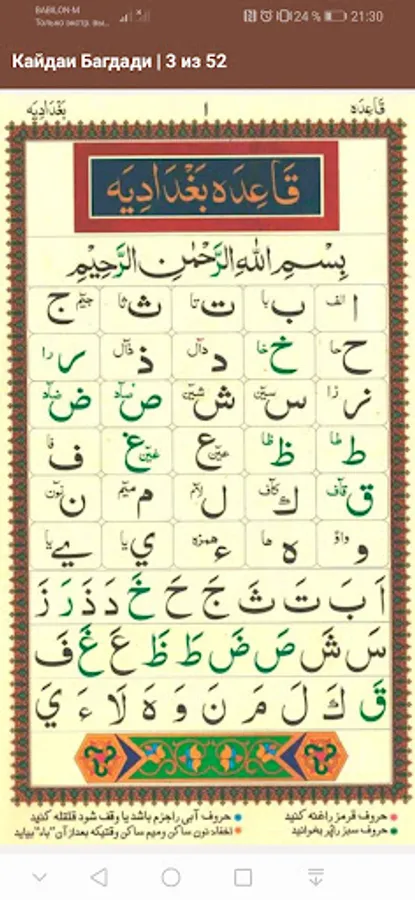 BABILON-M
Только экстр. вы...
24 % 21:30
Кайдаи Багдади | 3 из 52
قَاعِدَه ١ بَغْدَادِيَه
قَاعِدَه بَغْدَادِيَه
بِسْمِ اللهِ الرَّحْمٰنِ الرَّحِيْمِ
ا الف ب با ت تا ث ثا ج جيم
ح حا خ خا د دال ذ ذال ر را
ز زا س سين ش شين ص صاد ض ضاد
ط طا ظ ظا ع عين غ غين ف فا
ق قاف ك كاف ل لام م ميم ن نون
و واو ه ها ء همزه ي يا ے يا
اَ بَ تَ ثَ جَ حَ خَ دَ ذَ رَ زَ
سَ شَ صَ ضَ طَ ظَ عَ غَ فَ
قَ كَ لَ مَ نَ وَ هَ لَا ءَ يَ
حروف قرمز راغنه کنید
حروف آبی راجزم باشد یا وقف شود قلقله کنید
حروف سبز راپُر بخوانید
اخفاء نون ساکن ومیم ساکن وقتیکه بعداز آن "باء" بیاید